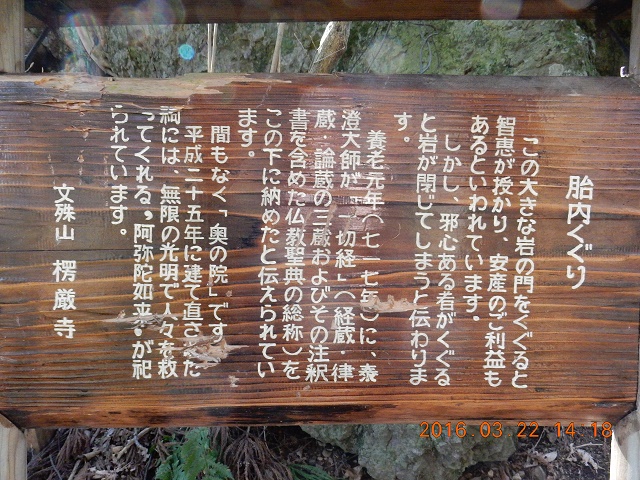 胎内くぐり
この大きな岩の門をくぐると
智恵が授かり、安産のご利益も
あるといわれています。
しかし、邪心ある者がくぐる
と岩が閉じてしまうと伝わりま
す。
養老元年（七一七年）に、泰
澄大師が「一切経」（経蔵・律
蔵・論蔵の三蔵およびその注釈
書を含めた仏教聖典の総称）を
この下に納めたと伝えられてい
ます。
間もなく「奥の院」です
平成二十五年に建て直された
祠には、無限の光明で人々を救
ってくれる〝阿弥陀如来〟が祀
られています。
文殊山　楞厳寺
2016.03.22 14:18